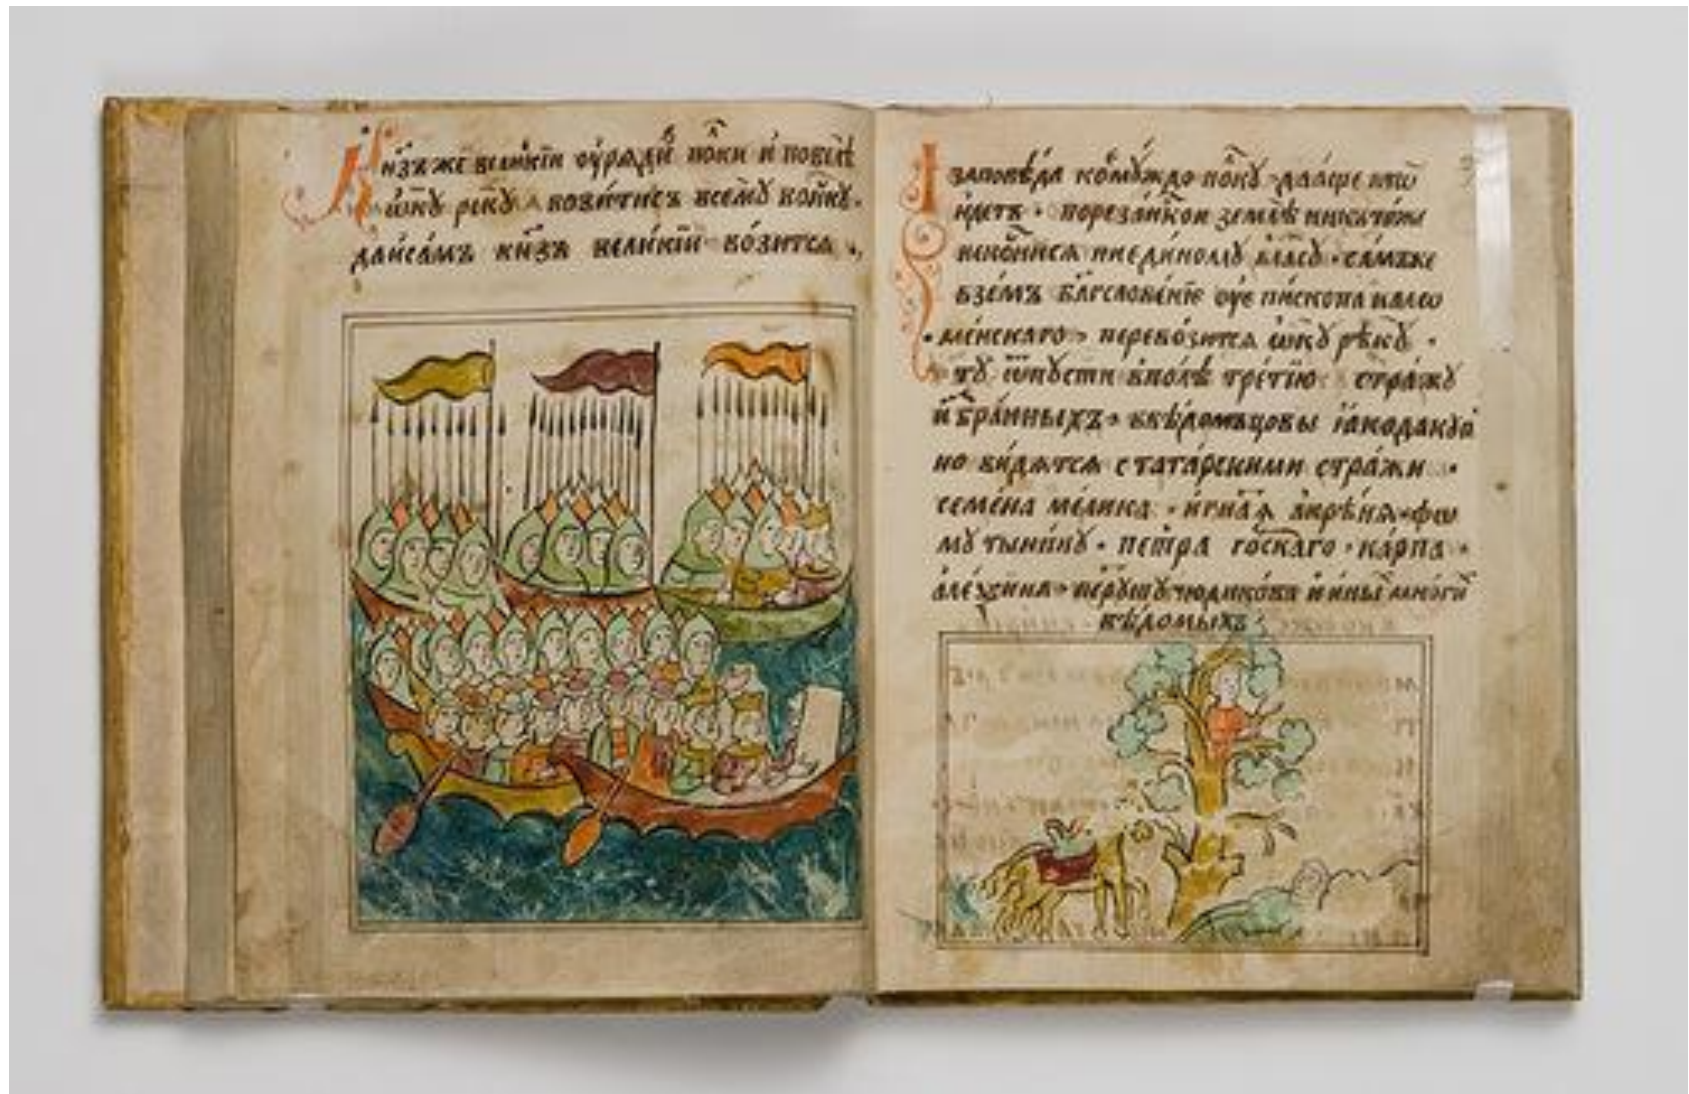 Кнѕь же великїи ѹрѧди поки и повелѣ
ѡкꙋ рекꙋ возитисѧ всемꙋ войкꙋ.
да и самъ кнѕь великїи возится
И заповѣда комꙋждо покꙋ да аще кто
идетъ по резанкой земле никтоже
некоснисѧ ни единомꙋ власꙋ. самъ же
вземъ блгословенїе ѹ епископа кало
менскаго перевозится ѡкꙋ рѣкꙋ.
тꙋ ѿпꙋсти в поле третїю стражꙋ
избранныхъ вѣдомъцовы ꙗко да кꙋп
но видятся с татарскими стражи.
семена мелика. игнатьѧ крѣня. фо
мꙋ тынинꙋ. петра горскаго. карпа
алеѯина. перꙋшꙋ чюдикова и иных многих
вѣдомыхъ